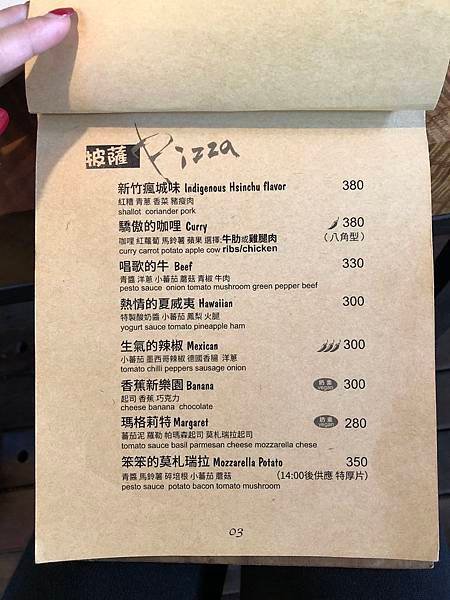 披薩 Pizza
新竹瘋城味 Indigenous Hsinchu flavor 380
紅糟 青蔥 香菜 豬瘦肉
shallot coriander pork
驕傲的咖哩 Curry 380
咖哩 紅蘿蔔 馬鈴薯 蘋果 選擇:牛肋或雞腿肉 (八角型)
curry carrot potato apple cow ribs/chicken
唱歌的牛 Beef 330
青醬 洋蔥 小蕃茄 蘑菇 青椒 牛肉
pesto sauce onion tomato mushroom green pepper beef
熱情的夏威夷 Hawaiian 300
特製酸奶醬 小蕃茄 鳳梨 火腿
yogurt sauce tomato pineapple ham
生氣的辣椒 Mexican 300
小蕃茄 墨西哥辣椒 德國香腸 洋蔥
tomato chilli peppers sausage onion
香蕉新樂園 Banana 奶素 vegan 300
起司 香蕉 巧克力
cheese banana chocolate
瑪格莉特 Margaret 奶素 vegan 280
蕃茄泥 羅勒 帕瑪森起司 莫札瑞拉起司
tomato sauce basil parmesan cheese mozzarella chese
笨笨的莫札瑞拉 Mozzarella Potato 350
青醬 馬鈴薯 碎培根 小蕃茄 蘑菇 (14:00後供應 特厚片)
pesto sauce potato bacon tomato mushroom
03